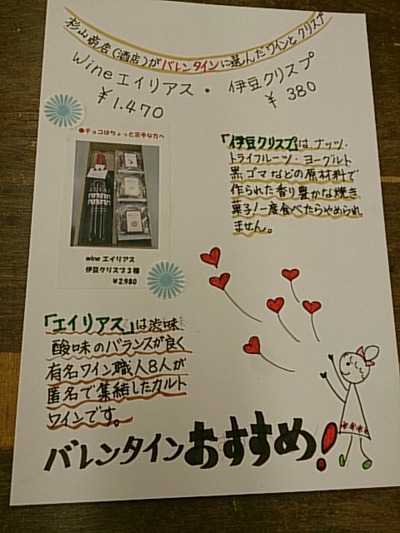 杉山商店(酒店)がバレンタインに選んだワインとクリスプ
wineエイリアス・伊豆クリスプ
¥1.470 ¥380
●チョコはちょっと苦手な方へ
wine エイリアス
伊豆クリスプ3種
¥2.980
「伊豆クリスプ」は、ナッツ・
トライフルーツ・ヨーグルト
黒ゴマなどの原材料で
作られた香り豊かな焼き
菓子!一度食べたらやめられ
ません。
「エイリアス」は渋味
酸味のバランスが良く
有名ワイン職人8人が
匿名で集結したカルト
ワインです。
バレンタインおすすめ!